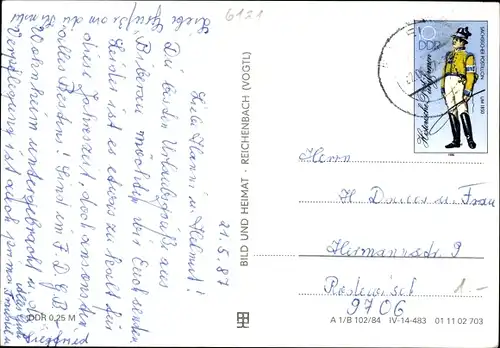 6121
21.5.87
Liebe Hanni u. Helmut!
Die besten Urlaubsgrüße aus
"Bitterau möchten wir Euch senden
Leider ist es etwas zu kalt für
diese Jahreszeit, doch ansonsten
alles Bestens! Sind im F.D.G.B.-
Wohnheim untergebracht u. die
Verpflegung ist auch prima
Liebe Grüße
DDR 0,25 M
BILD UND HEIMAT · REICHENBACH (VOGTL)
10
DDR
SÄCHSISCHER POSTILLION
UM 1850
Historische Postuniformen
1986
Herrn
H. u. Frau
Hermannstr. 9
Rodewisch
9706
1.-
A 1/B 102/84 IV-14-483 01 11 02 703